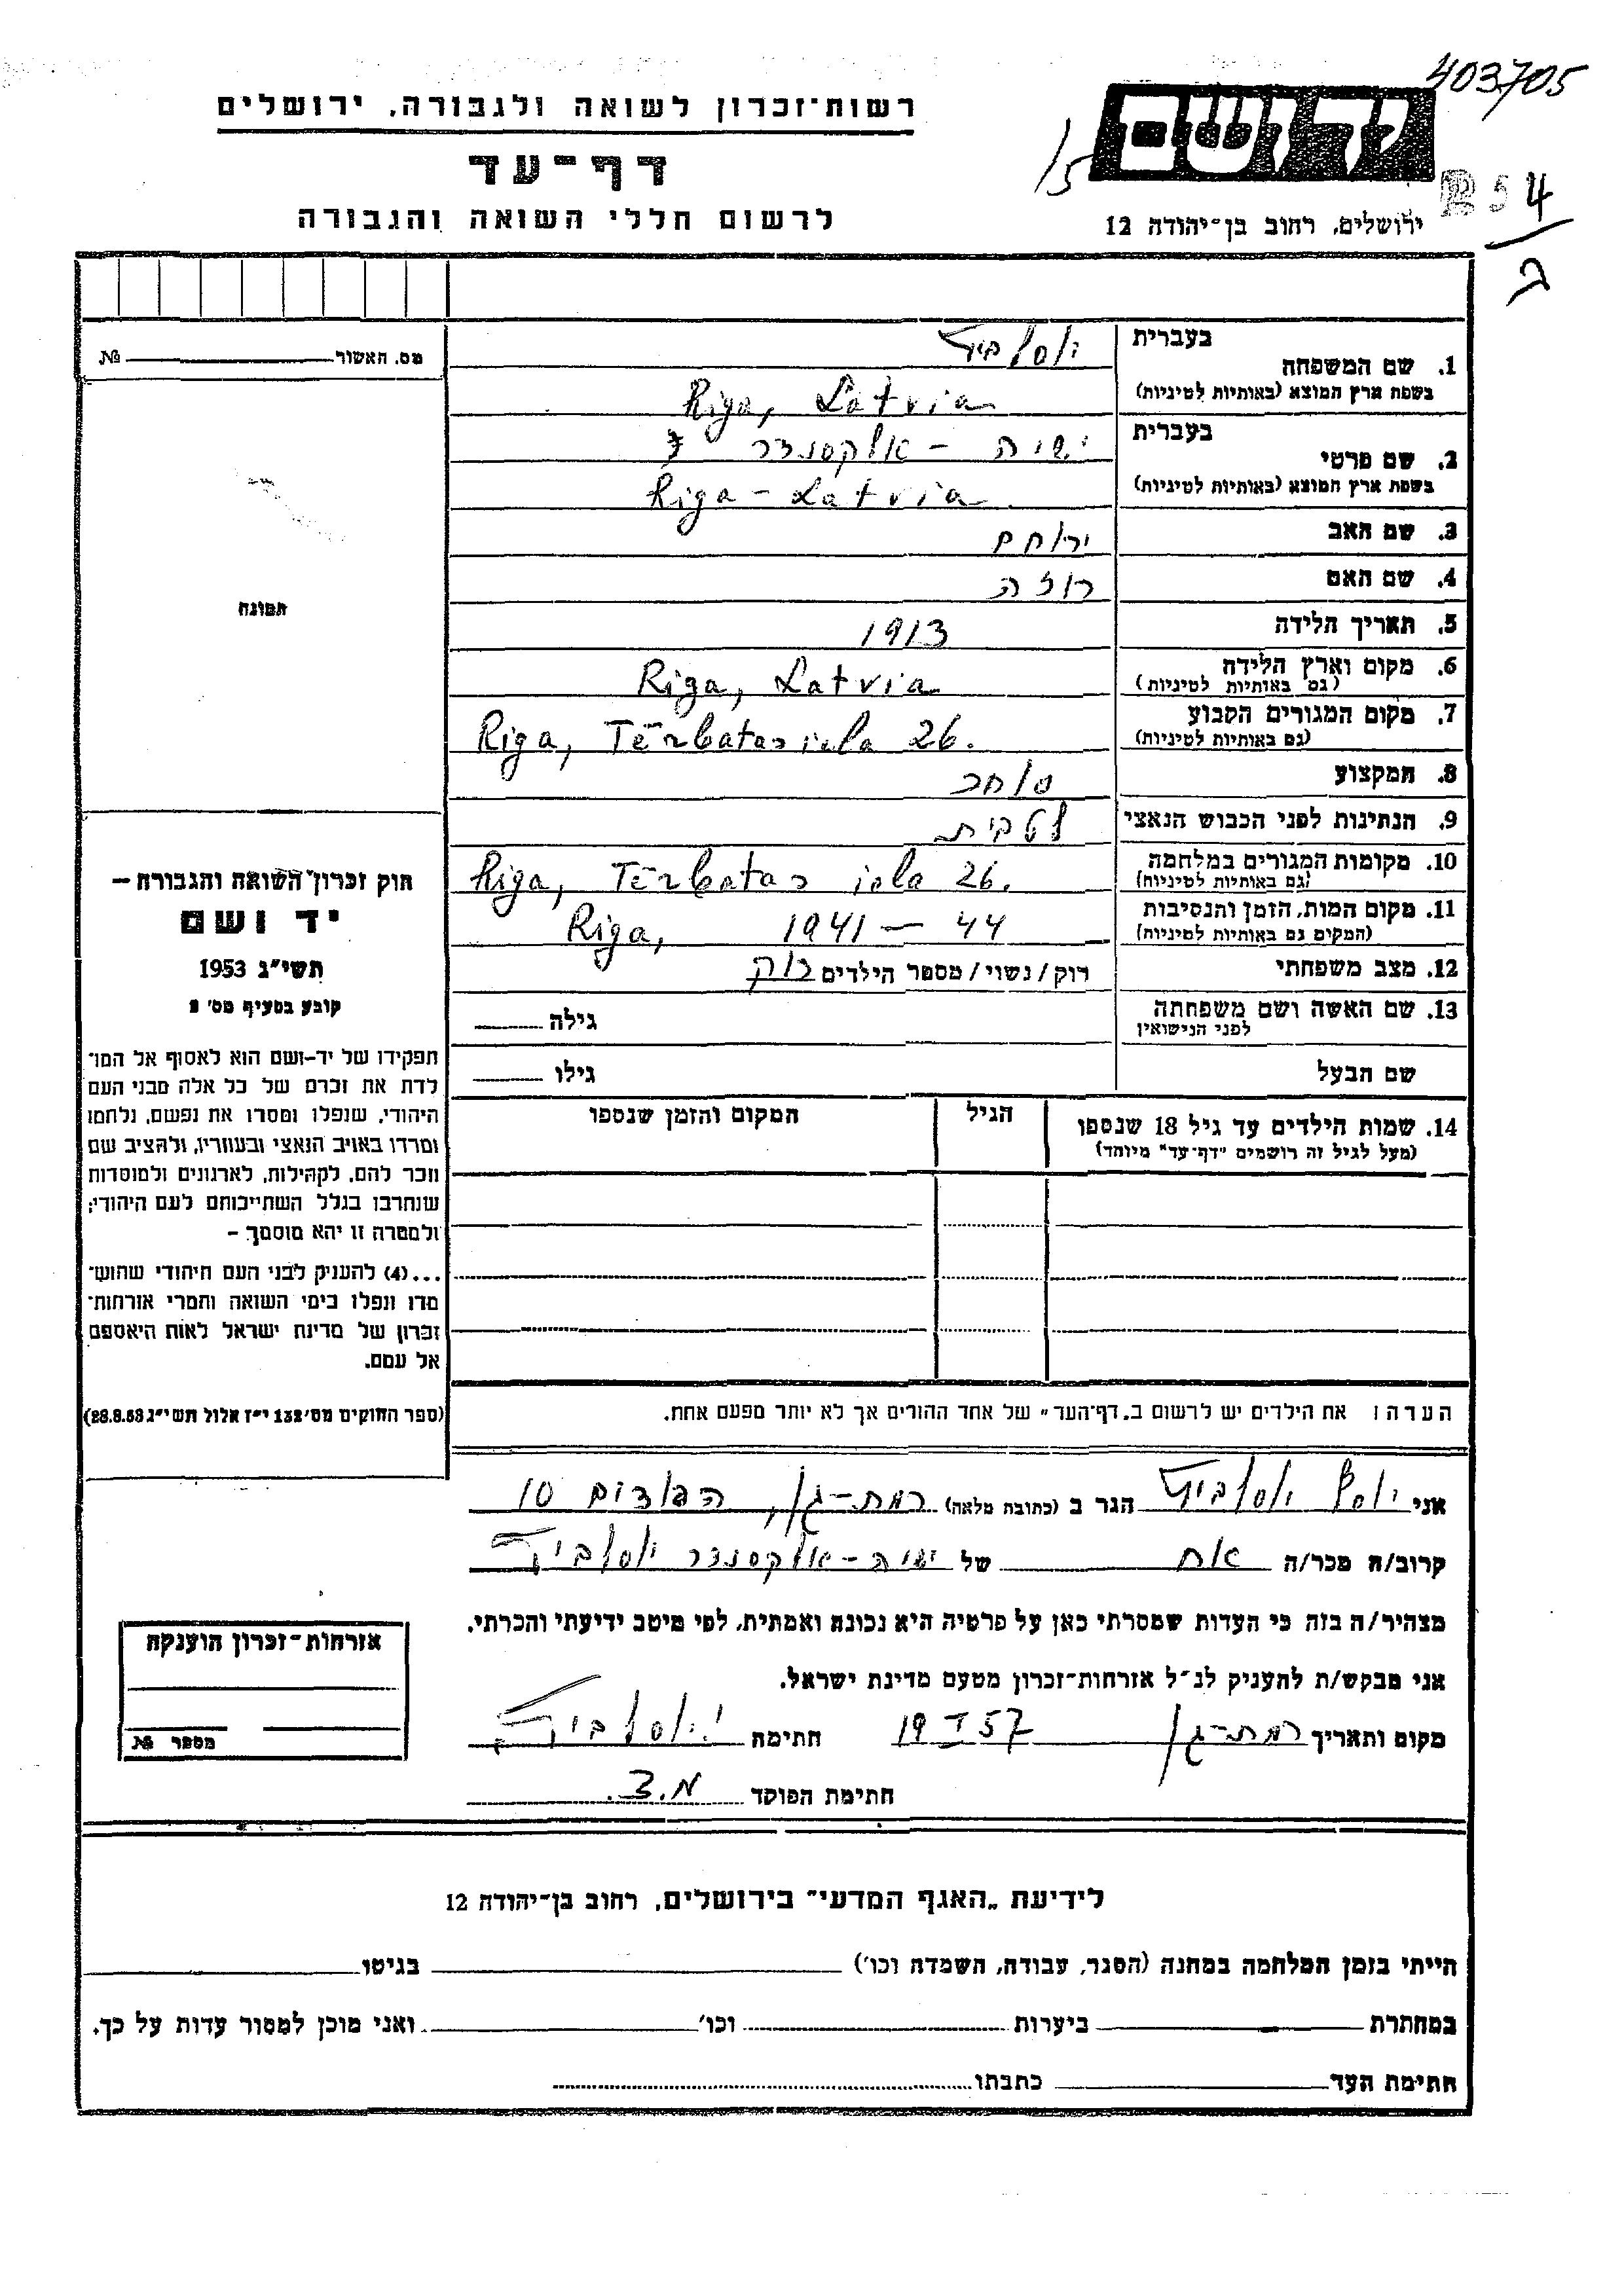 403705
רשות-זכרון לשואה ולגבורה, ירושלים
ידושם
15
דף-עד
54
לרשום חללי השואה והגבורה
ירושלים, רחוב בן-יהודה 12
ב
מס. האשור № 
1. שם המשפחה
בעברית
יוסלביץ
בשפת ארץ המוצא (באותיות לטיניות)
Riga, Latvia
2. שם פרטי
בעברית
ישיה - אלקסנדר
בשפת ארץ המוצא (באותיות לטיניות)
Riga - Latvia
3. שם האב ירוחם
4. שם האם רוזה
5. תאריך הלידה 1913
6. מקום וארץ הלידה (גם באותיות לטיניות) Riga, Latvia
7. מקום המגורים הקבוע (גם באותיות לטיניות) Riga, Tērbatas iela 26.
8. המקצוע סוחר
9. הנתינות לפני הכבוש הנאצי לטבית
10. מקומות המגורים במלחמה (גם באותיות לטיניות) Riga, Tērbatas iela 26.
11. מקום המות, הזמן והנסיבות (המקום גם באותיות לטיניות) Riga, 1941 - 44
12. מצב משפחתי רוק/נשוי/מספר הילדים רוק
13. שם האשה ושם משפחתה לפני הנישואין גילה
שם הבעל גילו
14. שמות הילדים עד גיל 18 שנספו
(מעל לגיל זה רושמים "דף-עד" מיוחד)
הגיל
המקום והזמן שנספו
הערה: את הילדים יש לרשום ב„דף-העד" של אחד ההורים אך לא יותר מפעם אחת.
תמונה
חוק זכרון השואה והגבורה –
יד ושם
תשי"ג 1953
קובע בסעיף מס' 2
תפקידו של יד-ושם הוא לאסוף אל המו-
לדת את זכרם של כל אלה מבני העם
היהודי, שנפלו ומסרו את נפשם, נלחמו
ומרדו באויב הנאצי ובעוזריו, ולהציב שם
וזכר להם, לקהילות, לארגונים ולמוסדות
שנחרבו בגלל השתייכותם לעם היהודי;
ולמטרה זו יהא מוסמך –
...(4) להעניק לבני העם היהודי שהוש-
מדו ונפלו בימי השואה והמרי אזרחות-
זכרון של מדינת ישראל לאות היאספם
אל עמם.
(ספר החוקים מס' 132 י"ז אלול תשי"ג 28.8.53)
אני יוסף יוסלביץ הגר ב (כתובת מלאה) רמת-גן, 10
קרוב/ה מכר/ה אח של ישיה-אלקסנדר יוסלביץ
מצהיר/ה בזה כי העדות שמסרתי כאן על פרטיה היא נכונה ואמתית, לפי מיטב ידיעתי והכרתי.
אני מבקש/ת להעניק לנ"ל אזרחות-זכרון מטעם מדינת ישראל.
מקום ותאריך רמת-גן 19 I 57 חתימה י. יוסלביץ
חתימת הפוקד מ.צ.
אזרחות-זכרון הוענקה
מספר №
לידיעת „האגף המדעי" בירושלים, רחוב בן-יהודה 12
הייתי בזמן המלחמה במחנה (הסגר, עבודה, השמדה וכו') בגיטו
במחתרת ביערות וכו' ואני מוכן למסור עדות על כך.
חתימת העד כתבתו